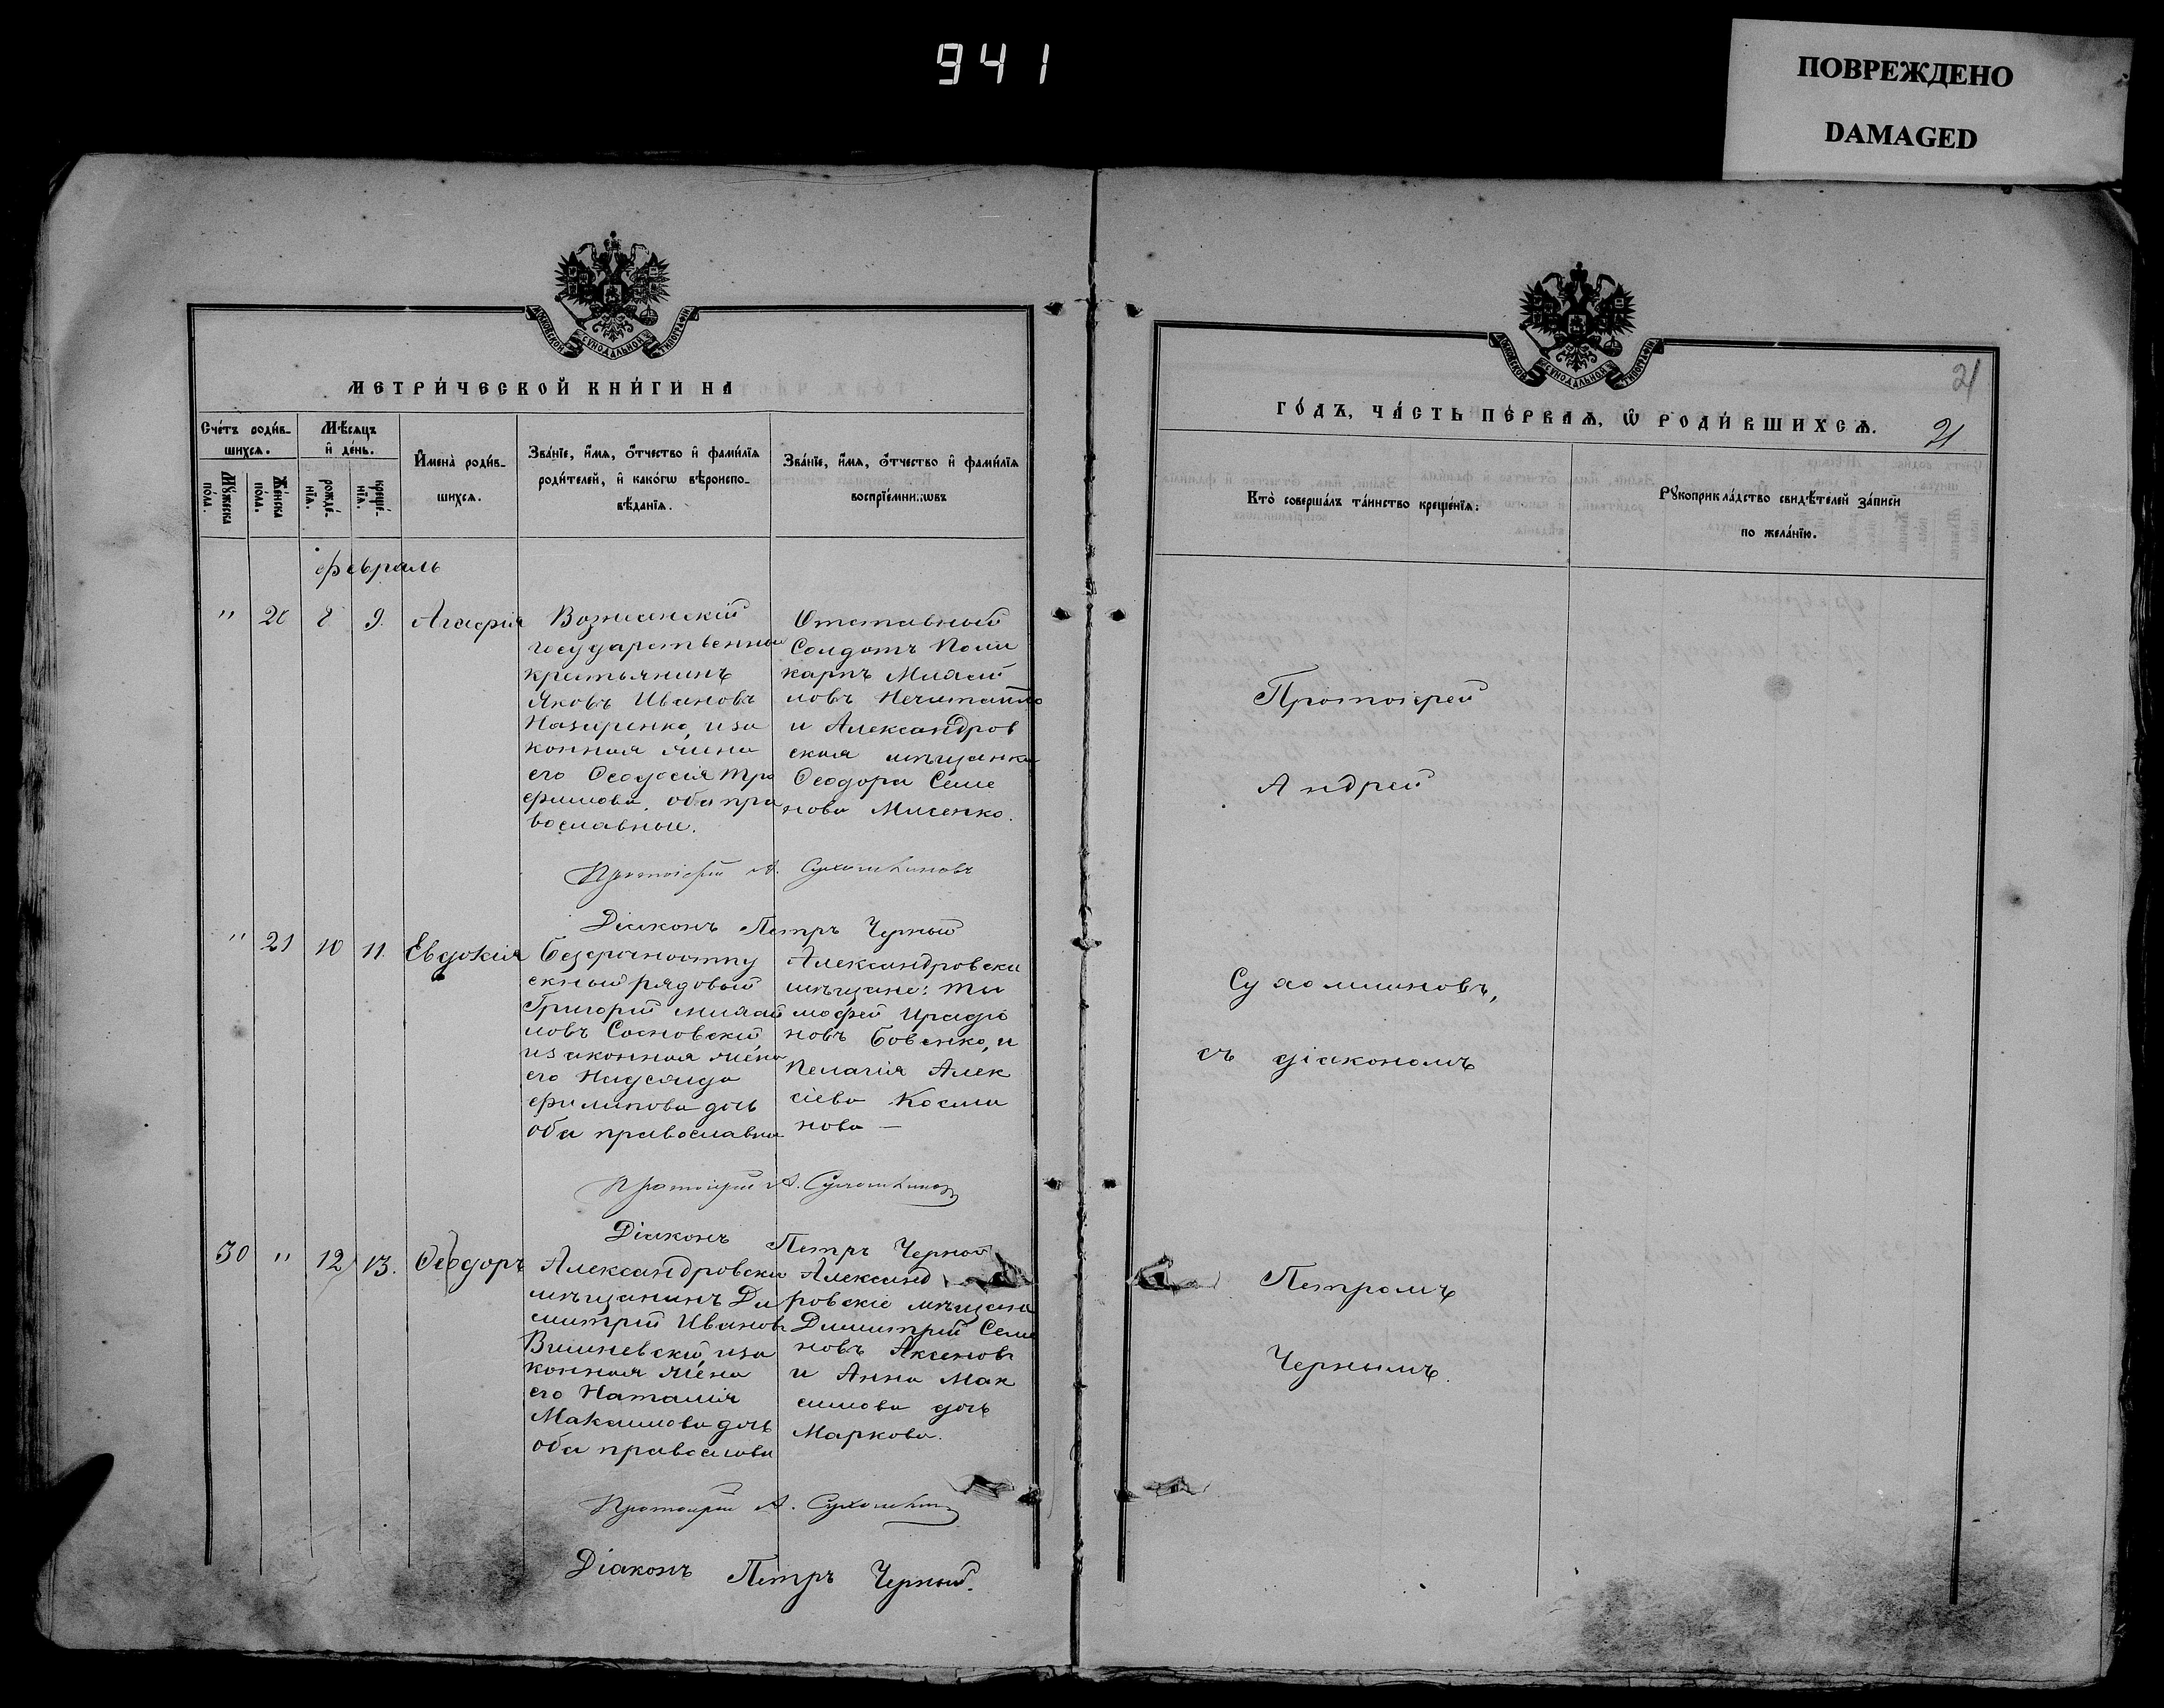 941
ПОВРЕЖДЕНО
DAMAGED
МОСКОВСКОЙ СѴНОДАЛЬНОЙ ТИПОГРАФІИ
МЕТРИ́ЧЕСКОЙ КНИ́ГИ НА
Сче́тъ роди́в-
шихсѧ.
Мѣ́сѧцъ
и҆ де́нь.
Мꙋ́жеска
по́ла.
Же́нска
по́ла.
рожде́-
нїѧ.
креще́-
нїѧ.
И҆мена̀ роди́в-
шихсѧ.
Зва́нїе, и҆́мѧ, ѻ҆́тчество и҆ фами́лїѧ
роди́телей, и҆ како́гѡ вѣроиспо-
вѣ́данїѧ.
Зва́нїе, и҆́мѧ, ѻ҆́тчество и҆ фами́лїѧ
воспрїе́мникѡвъ
февраль
" 20 8 9. Агафія
Вознесенскій
государственный
крестьянинъ
Яковъ Ивановъ
Назаренко, и за
конная жена
его Ѳеодосія Тро
фимова. оба пра
вославные.
Отставный
Солдатъ Поли
карпъ Михай
ловъ Нечитайло
и Александров
ская мѣщанка
Ѳеодора Семе
нова Мисенко.
Протоіерей А. Сухомлиновъ
Діаконъ Петръ Черный
" 21 10 11. Евдокія
безсрочноотпу
скный рядовый
Григорій Михай
ловъ Сосновскій,
и законная жена
его Надежда
Филипова дочь
оба православны
Александровскі
мѣщане: Ти
мофей Ирадіо
новъ Бовенко, и
Пелагія Алек
сіева Косми
нова —
Протоіерей А. Сухомлинов
Діаконъ Петръ Черной
30 " 12 13. Ѳеодоръ
Александровскі
мѣщанинъ Ди
митрій Иванов
Вишневскій, и за
конная жена
его Наталія
Максимова дочь
оба православ
Александ
ровскіе мѣщане
Димитрій Семе
новъ Аксенов
и Анна Мак
симова дочь
Маркова.
Протоіерей А. Сухомлин
Діаконъ Петръ Черный.
МОСКОВСКОЙ СѴНОДАЛЬНОЙ ТИПОГРАФІИ
21
ГО́ДЪ, ЧА́СТЬ ПЕ́РВАѦ, Ѡ҆ РОДИ́ВШИХСѦ.
21
Кто̀ соверша́лъ та́инство креще́нїѧ:
Рꙋкоприкла́дство свидѣ́телей за́писи
по жела́нїю.
Протоіерей
Андрей
Сухомлиновъ,
съ діакономъ
Петромъ
Чернымъ.